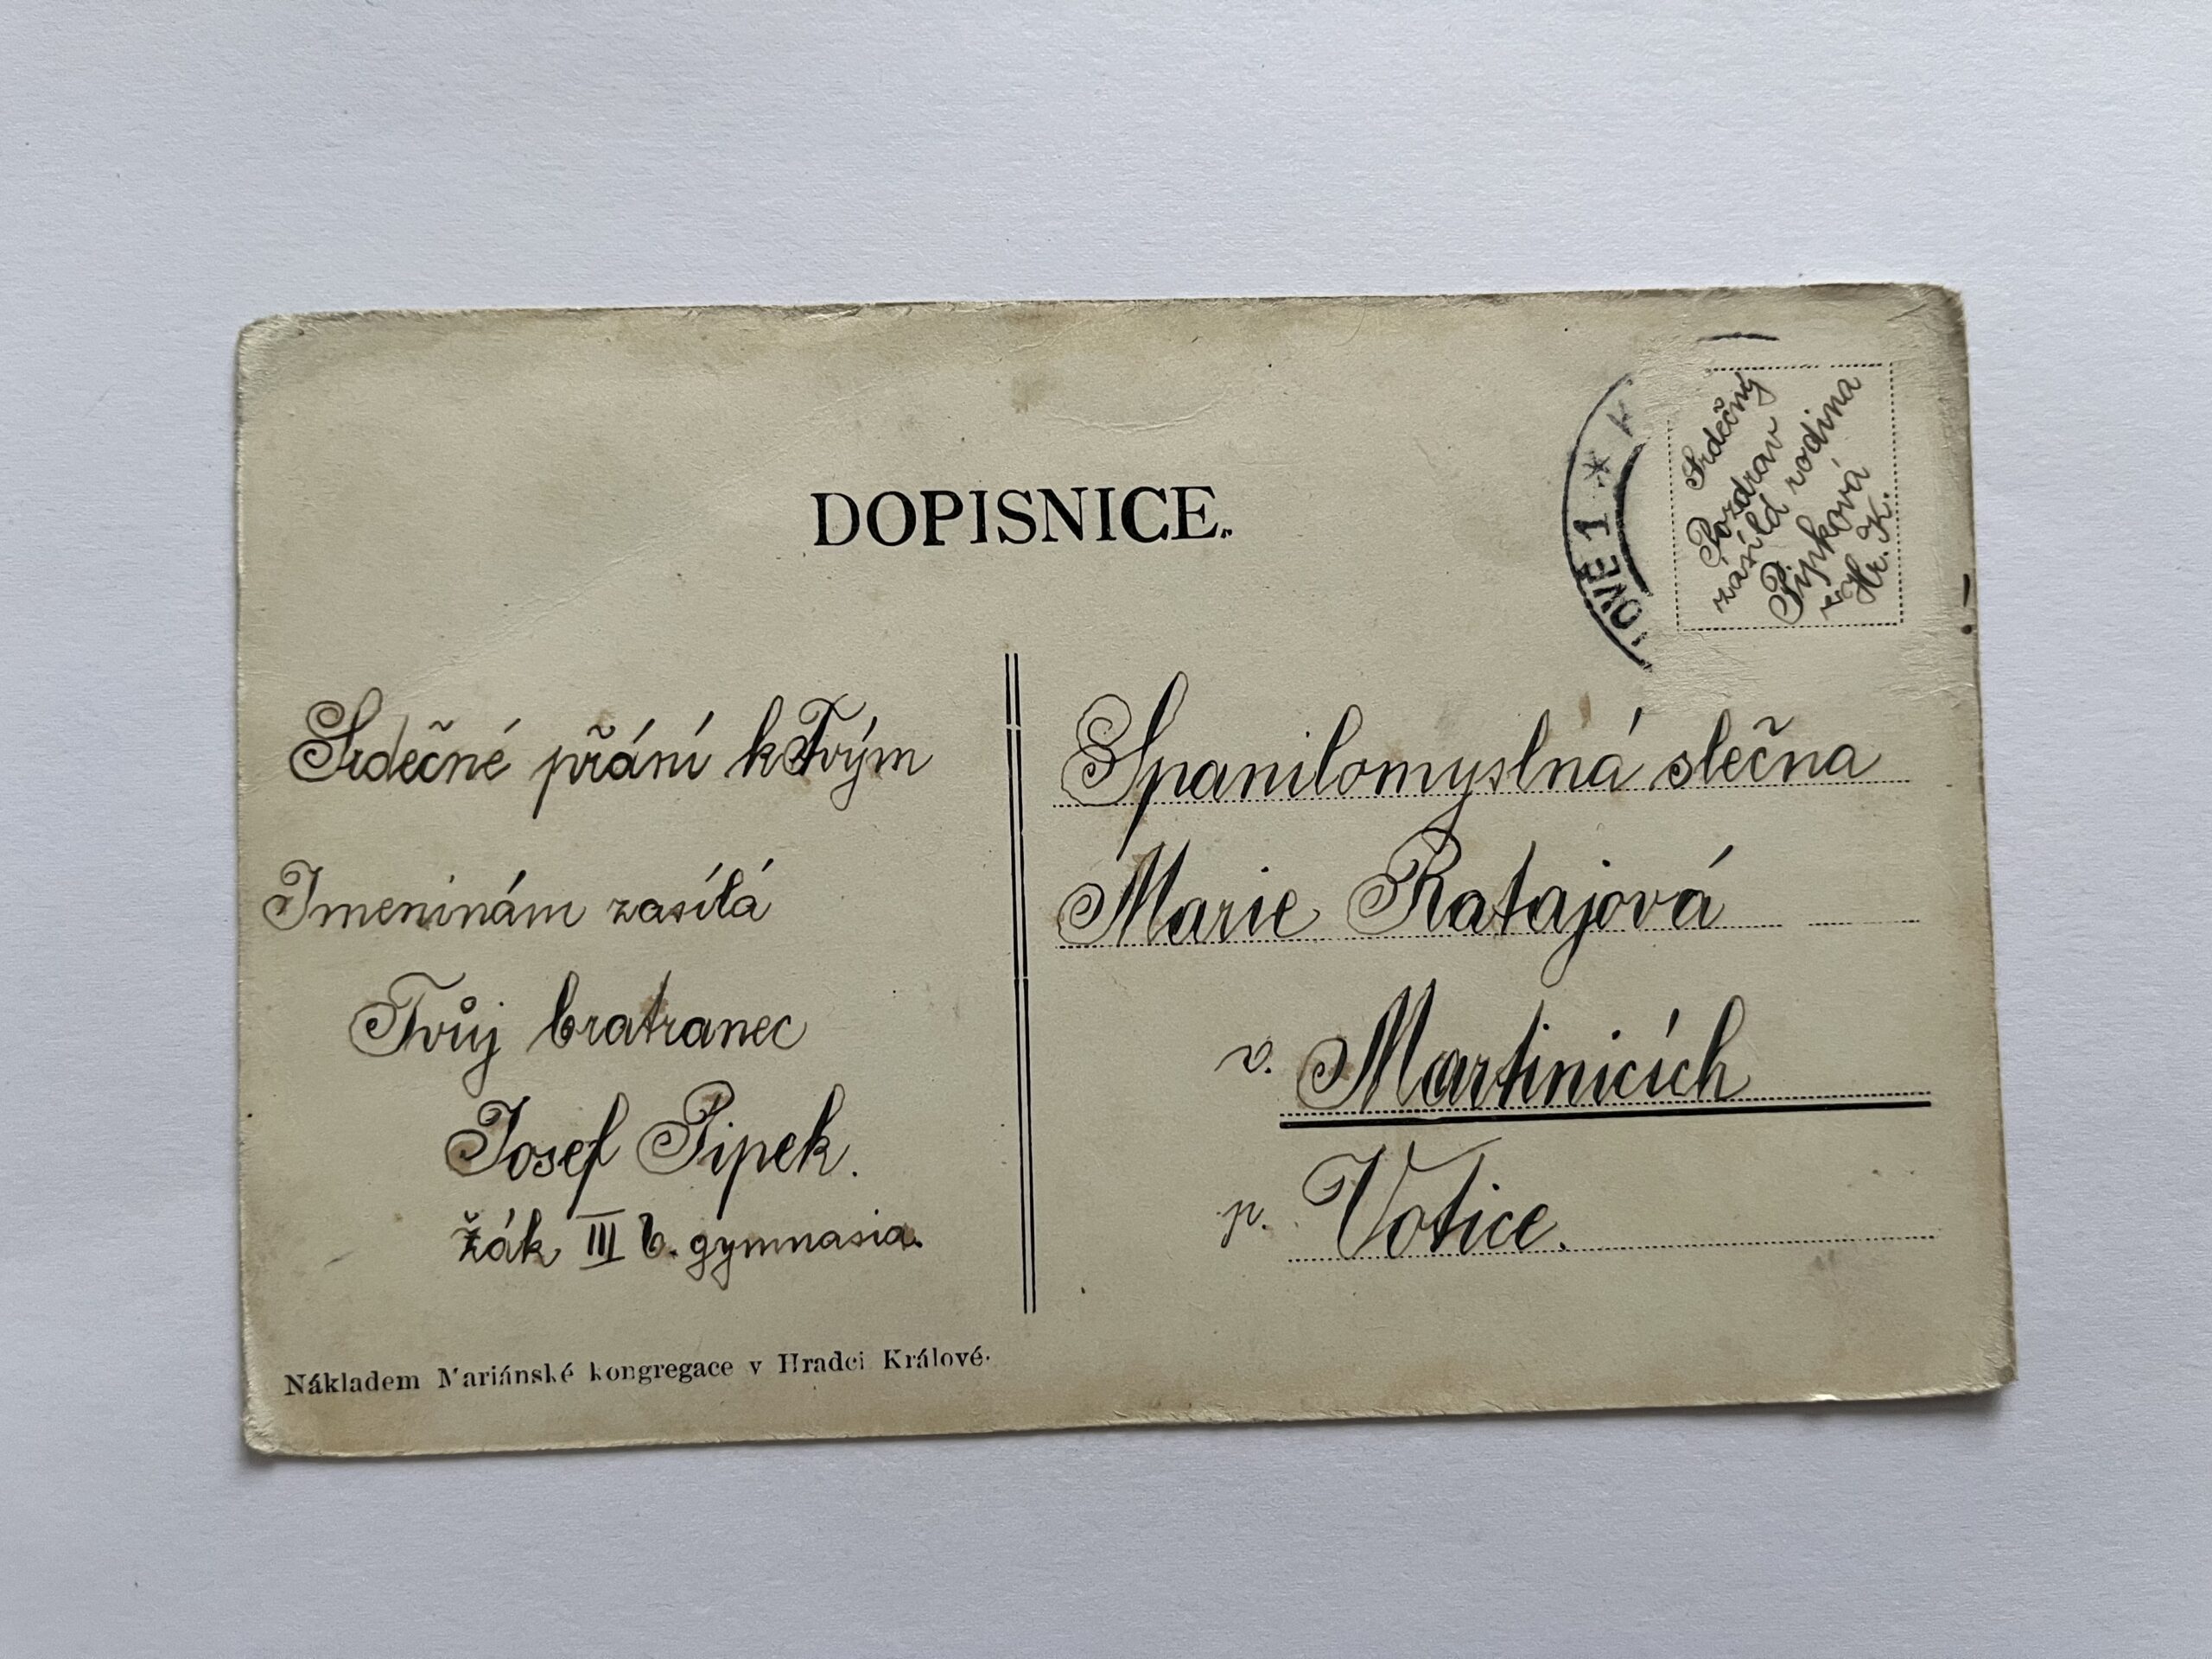 DOPISNICE.
OVE 1 * K
Srdečný
Pozdrav
zasílá rodina
Pipková
z Hr. K.
Srdečné přání k Tvým
Jmeninám zasílá
Tvůj bratranec
Josef Pipek.
žák III b. gymnasia.
Nákladem Mariánské kongregace v Hradci Králové.
Spanilomyslná slečna
Marie Ratajová
v. Martinicích
p. Votice.